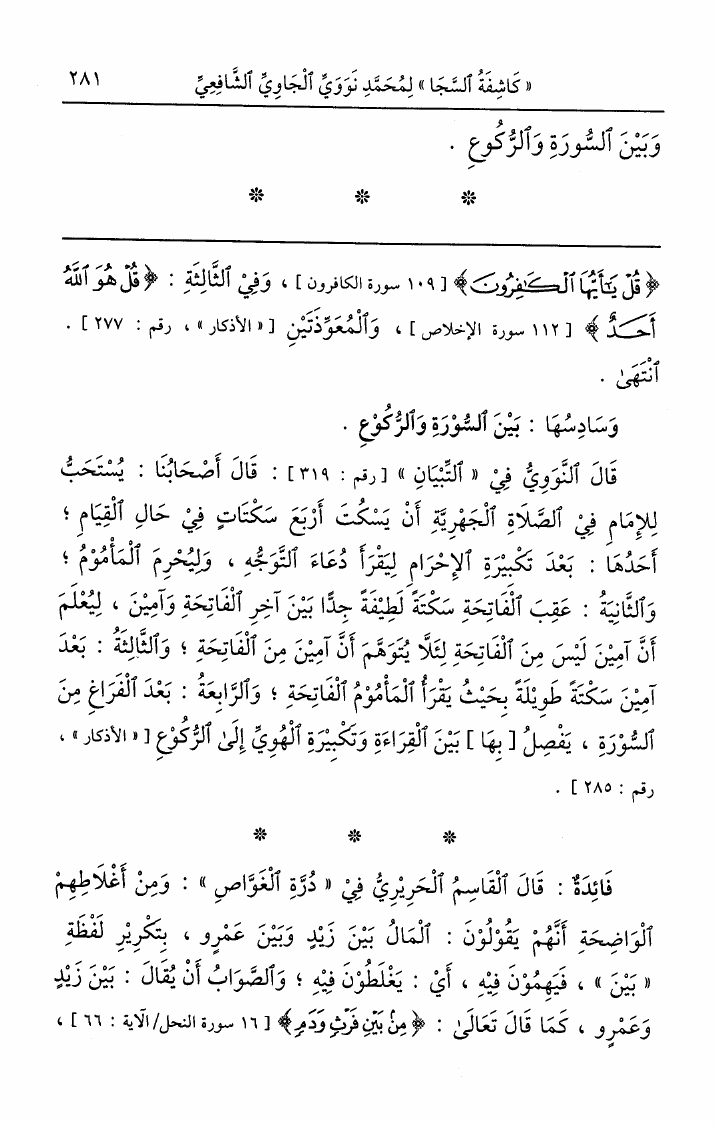 « كَاشِفَةُ ٱلسَّجَا » لِمُحَمَّدِ نَوَوِيِّ ٱلْجَاوِيِّ ٱلشَّافِعِيِّ ٢٨١
وَبَيْنَ ٱلسُّورَةِ وَٱلرُّكُوعِ .
* * *
﴿ قُلْ يَٰٓأَيُّهَا ٱلْكَٰفِرُونَ ﴾ [ ١٠٩ سورة الكافرون ] ، وَفِيْ ٱلثَّالِثَةِ : ﴿ قُلْ هُوَ ٱللَّهُ
أَحَدٌ ﴾ [ ١١٢ سورة الإخلاص ] ، وَٱلْمُعَوِّذَتَيْنِ [ « الأذكار » ، رقم : ٢٧٧ ] .
ٱنْتَهَىٰ .
وَسَادِسُهَا : بَيْنَ ٱلسُّوْرَةِ وَٱلرُّكُوْعِ .
قَالَ ٱلنَّوَوِيُّ فِيْ « ٱلتِّبْيَانِ » [ رقم : ٣١٩ ] : قَالَ أَصْحَابُنَا : يُسْتَحَبُّ
لِلإِمَامِ فِيْ ٱلصَّلَاةِ ٱلْجَهْرِيَّةِ أَنْ يَسْكُتَ أَرْبَعَ سَكْتَاتٍ فِيْ حَالِ ٱلْقِيَامِ ؛
أَحَدُهَا : بَعْدَ تَكْبِيْرَةِ ٱلإِحْرَامِ لِيَقْرَأَ دُعَاءَ ٱلتَّوَجُّهِ ، وَلِيُحْرِمَ ٱلْمَأْمُوْمُ ؛
وَٱلثَّانِيَةُ : عَقِبَ ٱلْفَاتِحَةِ سَكْتَةً لَطِيْفَةً جِدًّا بَيْنَ آخِرِ ٱلْفَاتِحَةِ وَآمِيْنَ ، لِيُعْلَمَ
أَنَّ آمِيْنَ لَيْسَ مِنَ ٱلْفَاتِحَةِ لِئَلَّا يُتَوَهَّمَ أَنَّ آمِيْنَ مِنَ ٱلْفَاتِحَةِ ؛ وَٱلثَّالِثَةُ : بَعْدَ
آمِيْنَ سَكْتَةً طَوِيْلَةً بِحَيْثُ يَقْرَأُ ٱلْمَأْمُوْمُ ٱلْفَاتِحَةِ ؛ وَٱلرَّابِعَةُ : بَعْدَ ٱلْفَرَاغِ مِنَ
ٱلسُّوْرَةِ ، يَفْصِلُ [ بِهَا ] بَيْنَ ٱلْقِرَاءَةِ وَتَكْبِيْرَةِ ٱلْهُوِيِّ إِلَىٰ ٱلرُّكُوْعِ [ « الأذكار » ،
رقم : ٢٨٥ ] .
* * *
فَائِدَةٌ : قَالَ ٱلْقَاسِمُ ٱلْحَرِيْرِيُّ فِيْ « دُرَّةِ ٱلْغَوَّاصِ » : وَمِنْ أَغْلَاطِهِمْ
ٱلْوَاضِحَةِ أَنَّهُمْ يَقُوْلُوْنَ : ٱلْمَالُ بَيْنَ زَيْدٍ وَبَيْنَ عَمْرٍو ، بِتَكْرِيْرِ لَفْظَةِ
« بَيْنَ » ، فَيَهِمُوْنَ فِيْهِ ، أَيْ : يَغْلَطُوْنَ فِيْهِ ؛ وَٱلصَّوَابُ أَنْ يُقَالَ : بَيْنَ زَيْدٍ
وَعَمْرٍو ، كَمَا قَالَ تَعَالَىٰ : ﴿ مِنۢ بَيْنِ فَرْثٍ وَدَمٍ ﴾ [ ١٦ سورة النحل/الآية : ٦٦ ] ،